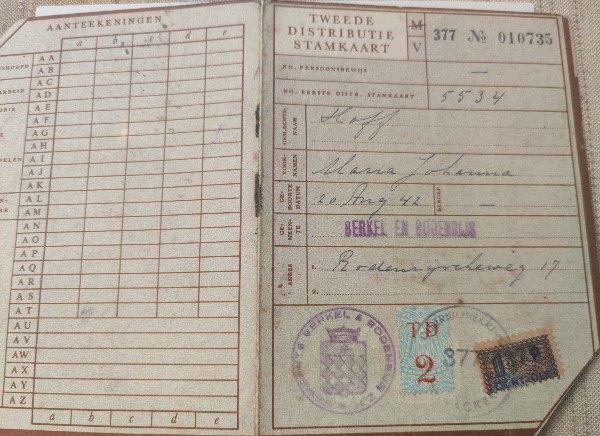 AANTEEKENINGEN
a b c d e
AA
AB
AC
AD
AE
AF
AG
AH
AI
AJ
AK
AL
AM
AN
AO
AP
AQ
AR
AS
AT
AU
AV
AW
AX
AY
AZ
a b c d e
TWEEDE
DISTRIBUTIE
STAMKAART
M
V
377 № 010735
NO. PERSOONSBEWIJS —
NO. EERSTE DISTR. STAMKAART 5534
GESLACHTS-
NAAM
Hoff
VOOR-
NAMEN
Maria Johanna
GE-
BOORTE
DATUM
20 Aug 42
—
GE-
MEEN-
TE
BERKEL EN RODENRIJS
ADRES
Rodenrijscheweg 17
GEMEENTE BERKEL & RODENRIJS Z.H.
TD
2
377
1